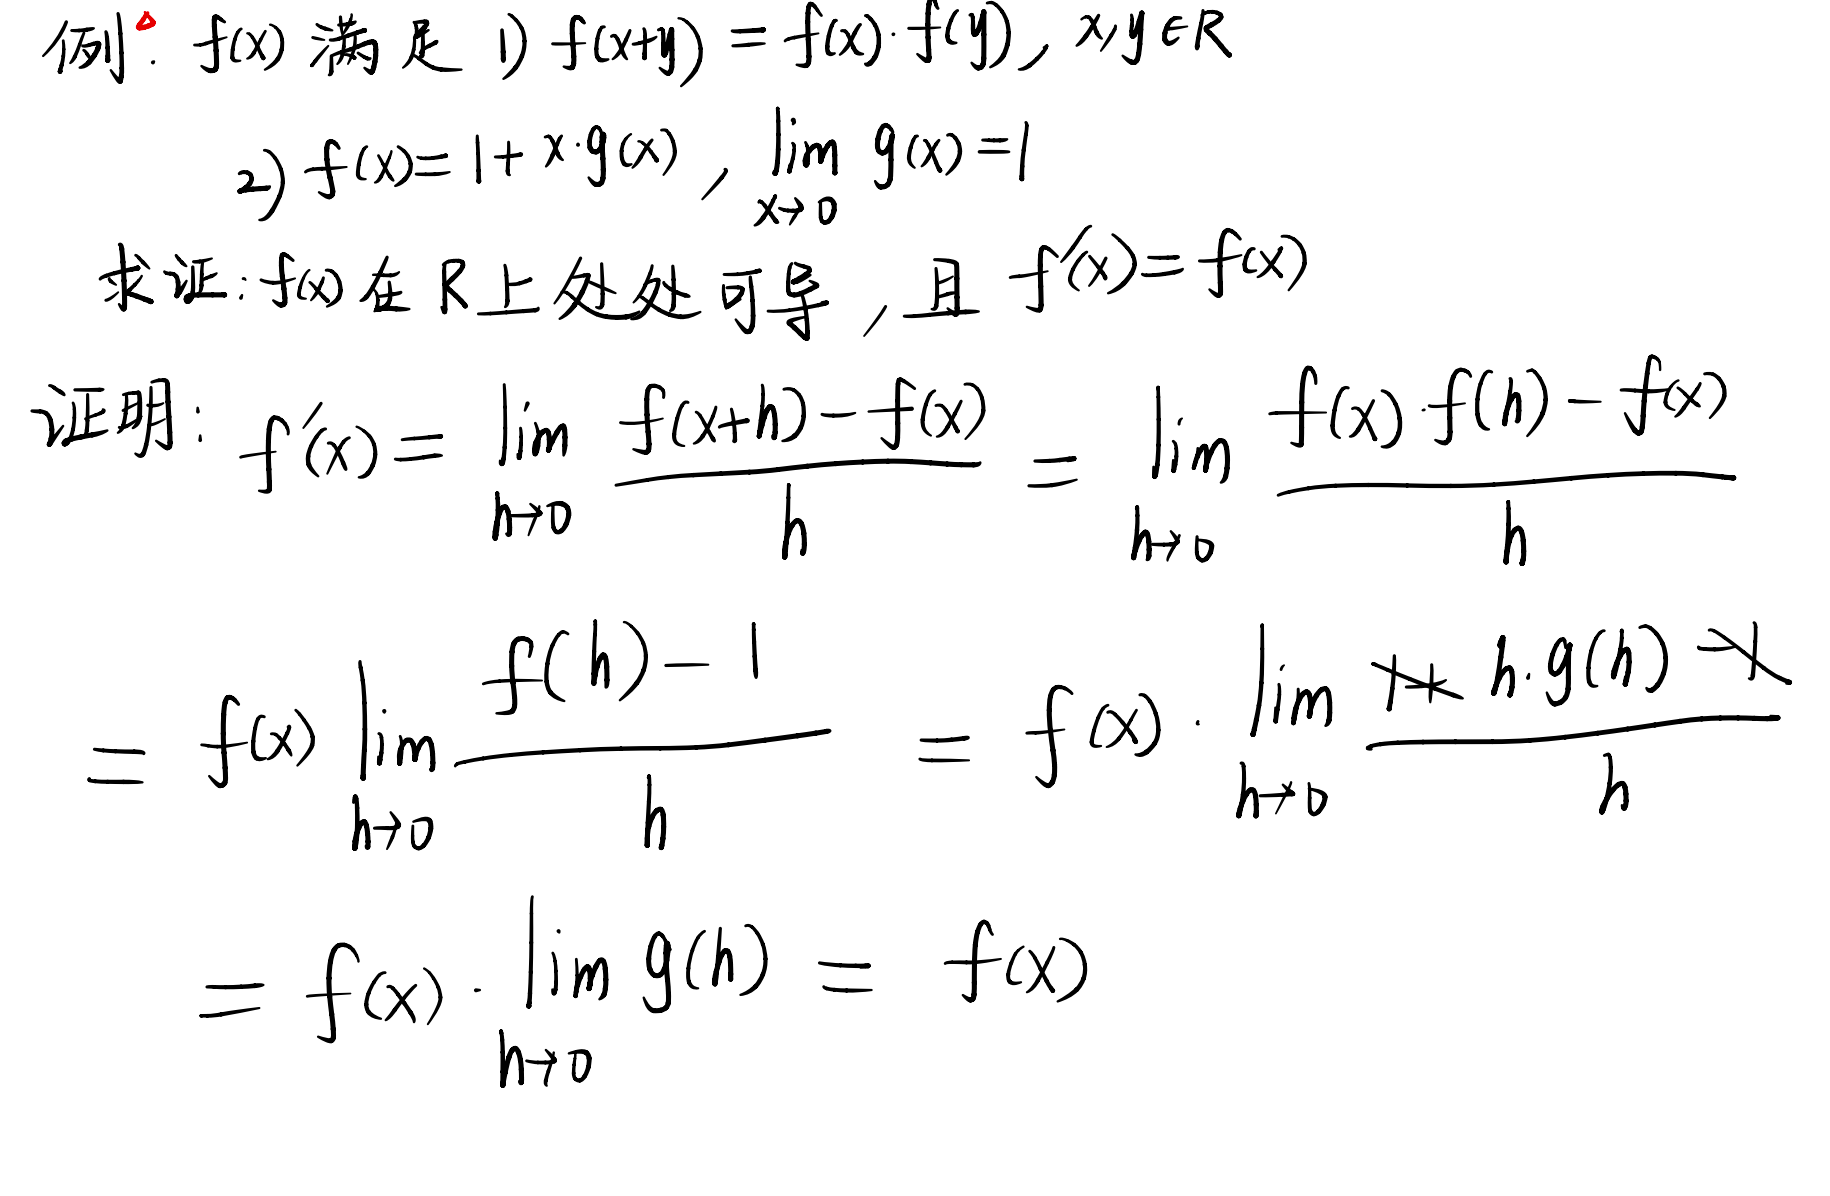 例△: f(x) 满足 1) f(x+y) = f(x)·f(y), x,y∈R
2) f(x)=1+x·g(x), lim_{x→0} g(x)=1
求证: f(x) 在 R 上处处可导, 且 f′(x)=f(x)
证明: f′(x) = lim_{h→0} \frac{f(x+h)-f(x)}{h} = lim_{h→0} \frac{f(x)·f(h)-f(x)}{h}
= f(x) lim_{h→0} \frac{f(h)-1}{h} = f(x)·lim_{h→0} \frac{1+h·g(h)-1}{h}
= f(x)·lim_{h→0} g(h) = f(x)